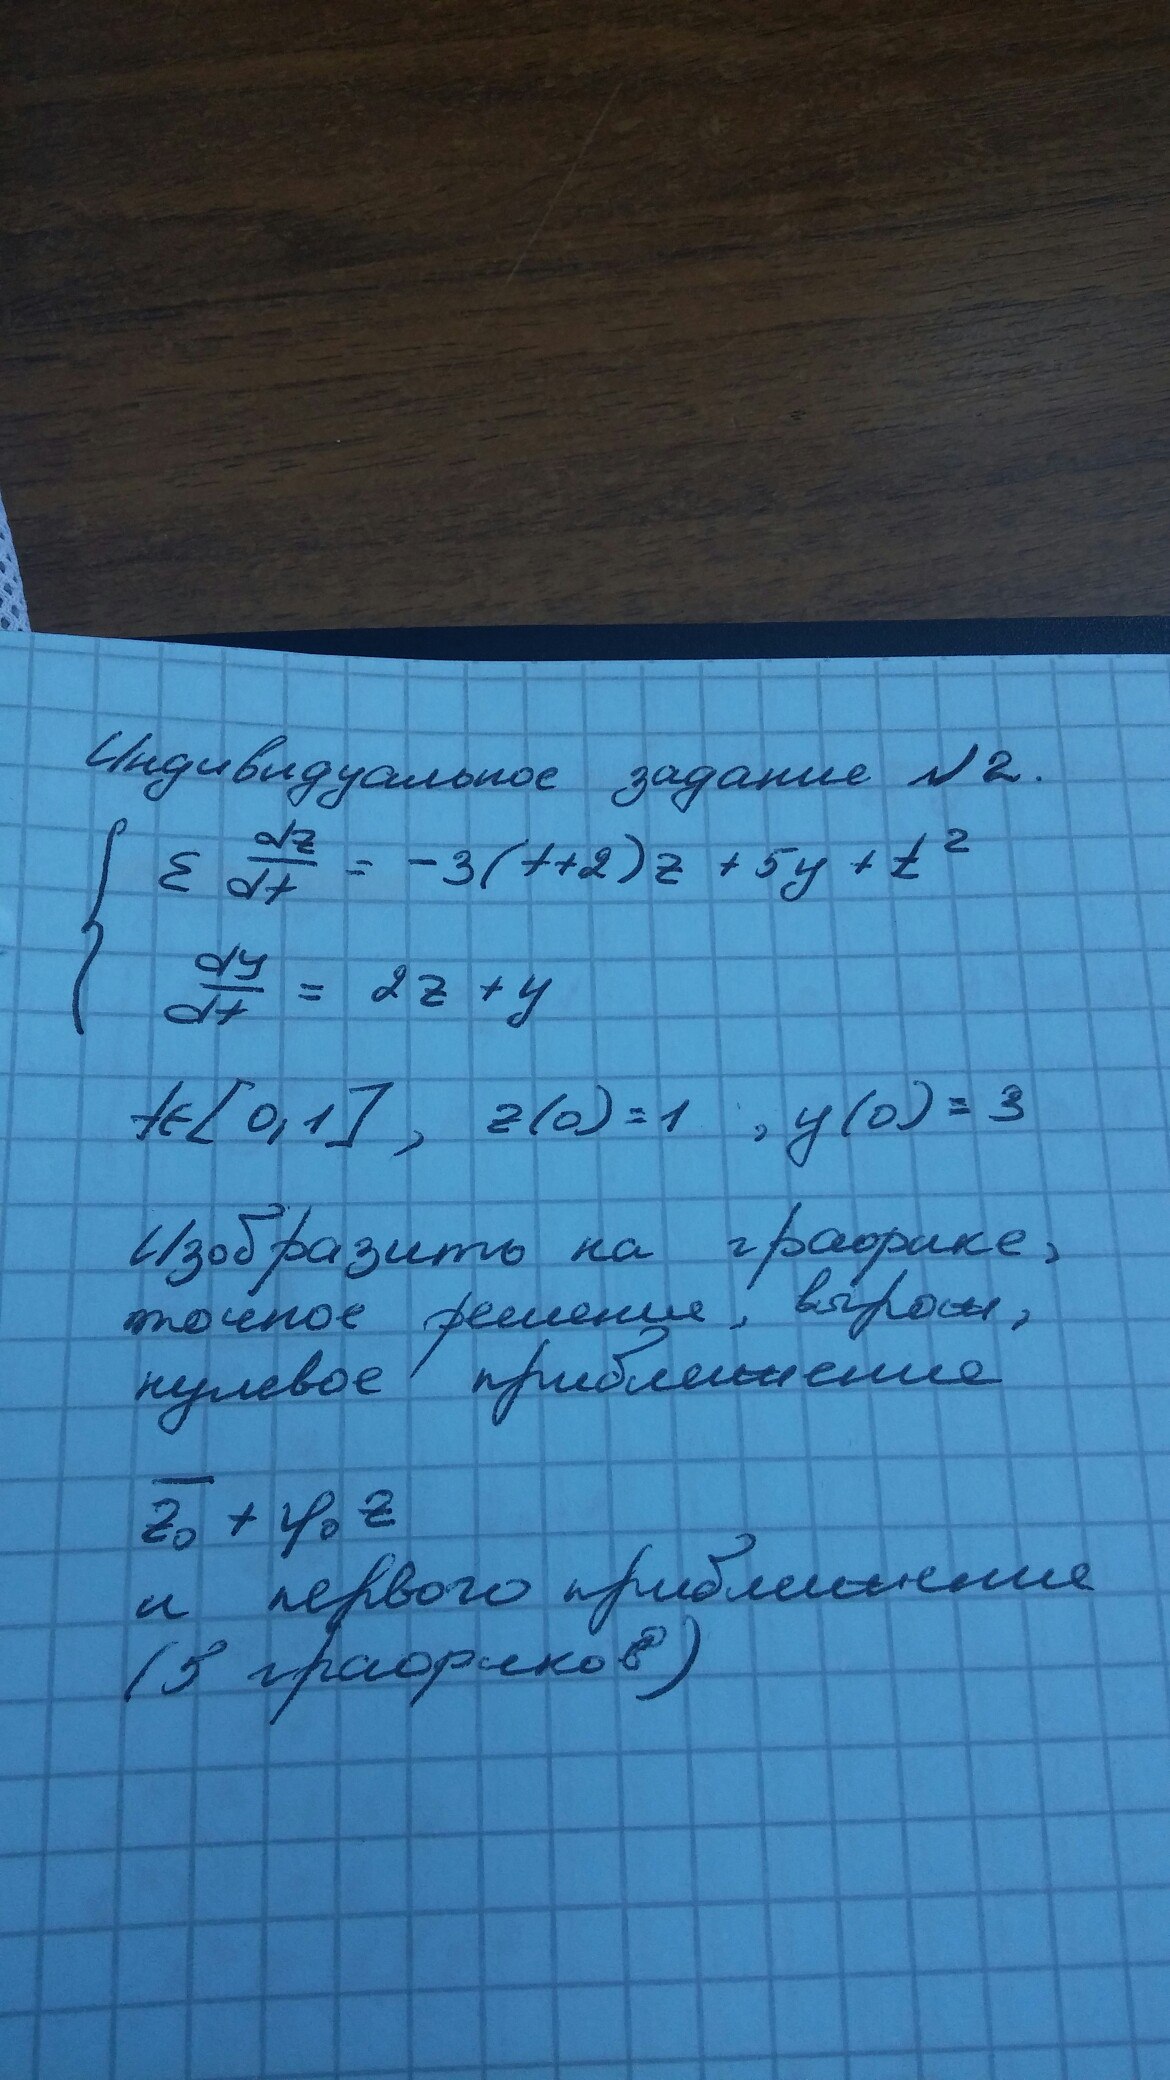 Индивидуальное задание №2.
ε dz/dt = -3(t+2)z + 5y + t²
dy/dt = 2z + y
t∈[0,1], z(0)=1, y(0)=3
Изобразить на графике,
точное решение, вырож,
нулевое приближение
z̄₀ + φ₀ z
и первого приближение
(5 графиков)